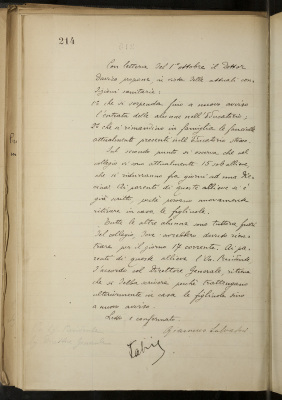 214
Con lettera del 1° ottobre il Dottor
propone, in vista delle attuali con-
dizioni sanitarie:
1° che si sospenda fino a nuovo avviso
l'entrata delle alunne nell'Educatorio;
2° che si rimandino in famiglia le fanciulle
attualmente presenti nell'Educatorio stesso.
Sul secondo punto si osserva che nel
collegio vi sono attualmente 15 sole allieve
che si ridurranno fra giorni ad una
Ai parenti di queste allieve si è
già scritto perché vengano
ritirare in casa le figliuole.
Tutte le altre alunne sono tuttora fuori
del collegio, dove avrebbero dovuto rien-
trare per il giorno 17 corrente. Ai pa-
renti di queste allieve il Vice Presidente
d'accordo col Direttore Generale, ritiene
che si debba scrivere perché trattengano
ulteriormente in casa le figliuole sino
a nuovo avviso.
Letto e confermato.